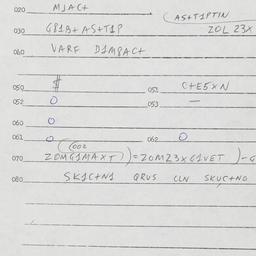 020 MJACt
ASTT1PTIN
030 GP1Bt AStT1P ZOL 23X
040 VARF D1MPACt
050 $ 051 CtE5XN
052 O 053 —
060 O
061 O 062 O
002
070 ZOMG1MAXT ) = ZOM23XG1VET ) - G
080 SK1CtN1 QRUS CLN SKUCtNO